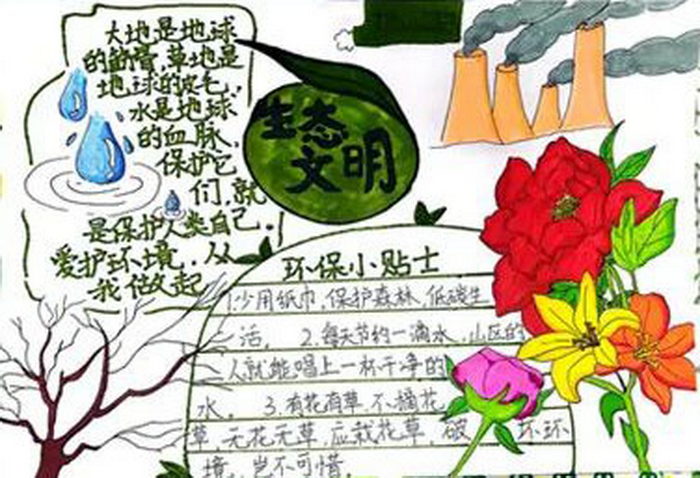 大地是地球
的筋骨,草地是
地球的皮毛,
水是地球
的血脉,
保护它
们,就
是保护人类自己。
爱护环境,从
我做起
生态
文明
环保小贴士
1.少用纸巾,保护森林,低碳生
活。 2.每天节约一滴水,山区的
人就能喝上一杯干净的
水。 3.有花有草,不摘花
草,无花无草,应栽花草,破 环环
境,岂不可惜。